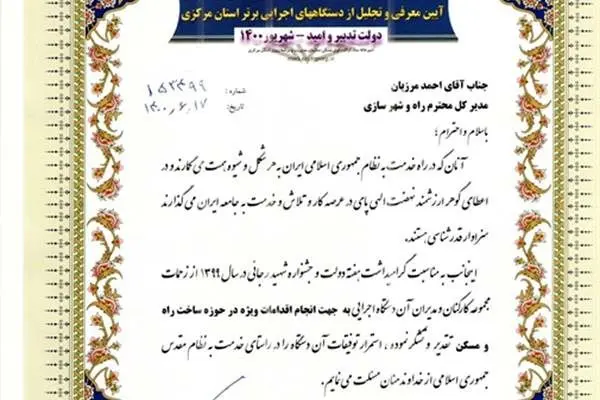 آیین معرفی و تجلیل از دستگاههای اجرایی برتر استان مرکزی
دولت تدبیر و امید - شهریور ۱۴۰۰
جناب آقای احمد مرزبان
شماره: ۱۵۳۴۹۹
مدیر کل محترم راه و شهر سازی
تاریخ: ۱۴۰۰,۶,۱۷
باسلام و احترام؛
آنان که در راه خدمت به نظام جمهوری اسلامی ایران به هر شکل و شیوه همت می گمارند و در
اعطای گوهر ارزشمند نهضت الهی پای در عرصه کار و تلاش و خدمت به جامعه ایران می گذارند
سزاوار قدرشناسی هستند.
اینجانب به مناسبت گرامیداشت هفته دولت و جشنواره شهید رجائی در سال ۱۳۹۹ از زحمات
مجموعه کارکنان و مدیران آن دستگاه اجرایی به جهت انجام اقدامات ویژه در حوزه ساخت راه
و مسکن تقدیر و تشکر نموده، استمرار توفیقات آن دستگاه را در راستای خدمت به نظام مقدس
جمهوری اسلامی از خداوند منان مسئلت می نمایم.